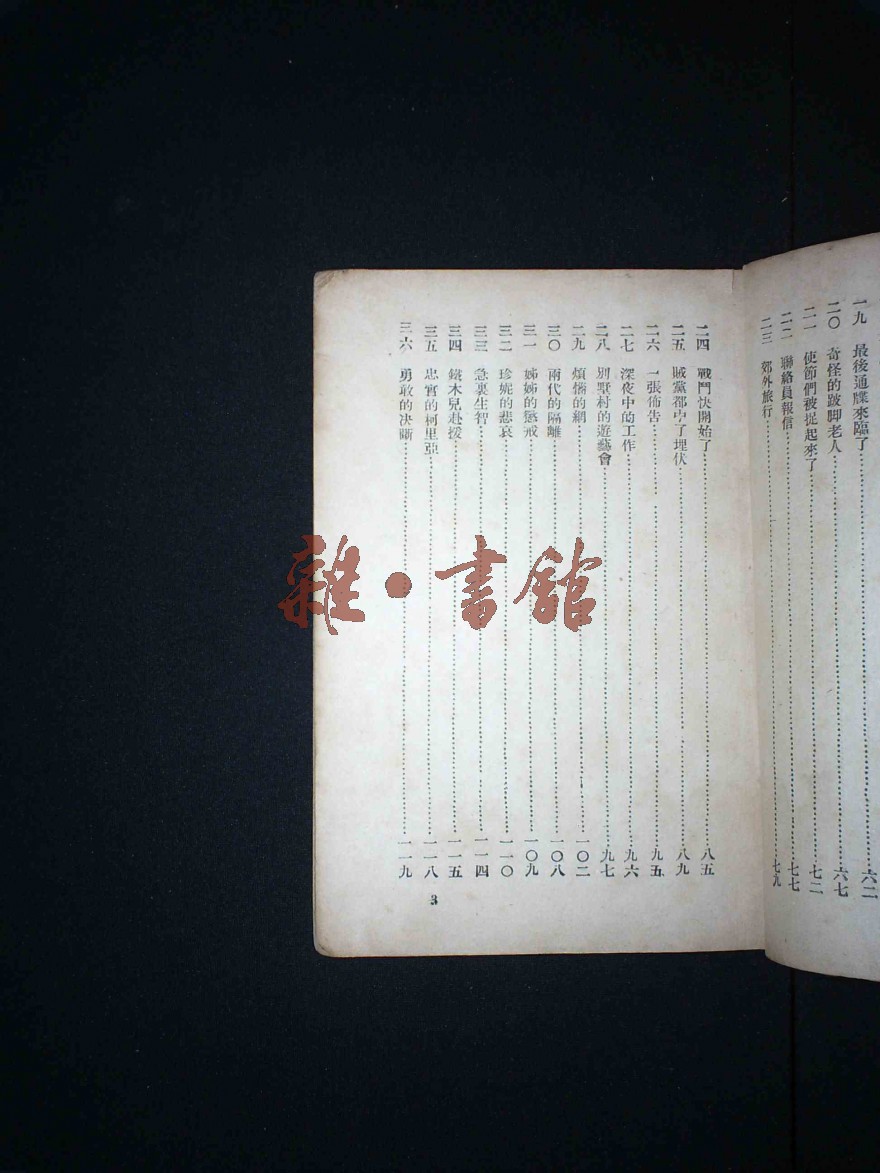 一九 最後通牒來臨了……六二
二〇 奇怪的跛脚老人……六七
二一 使節們被捉起來了……七二
二二 聯絡員報信……七七
二三 郊外旅行……七九
二四 戰鬥快開始了……八五
二五 賊黨都中了埋伏……八九
二六 一張佈告……九五
二七 深夜中的工作……九六
二八 別墅村的遊藝會……九七
二九 煩惱的網……一〇二
三〇 兩代的隔離……一〇八
三一 姊姊的懲戒……一〇九
三二 珍妮的悲哀……一一〇
三三 急裏生智……一一四
三四 鐵木兒赴援……一一五
三五 忠實的柯里亞……一一八
三六 勇敢的决斷……一一九
3
雜·書館